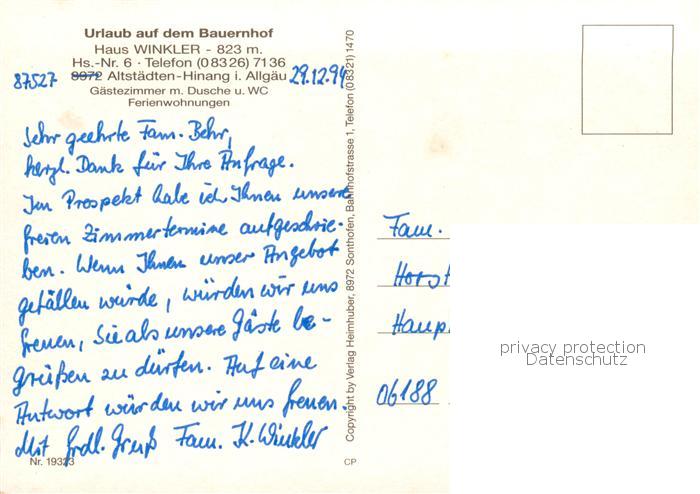 Urlaub auf dem Bauernhof
Haus WINKLER - 823 m.
Hs.-Nr. 6 · Telefon (08326) 7136
87527 8972 Altstädten-Hinang i. Allgäu 29.12.94
Gästezimmer m. Dusche u. WC
Ferienwohnungen
Sehr geehrte Fam. Behr,
herzl. Dank für Ihre Anfrage.
Im Prospekt habe ich Ihnen unsere
freien Zimmertermine aufgeschrie-
ben. Wenn Ihnen unser Angebot
gefällen würde, würden wir uns
freuen, Sie als unsere Gäste be-
grüßen zu dürfen. Auf eine
Antwort würden wir uns freuen.
Mit frdl. Gruß Fam. K. Winkler
Nr. 19323
Copyright by Verlag Heimhuber, 8972 Sonthofen, Bahnhofstrasse 1, Telefon (08321) 1470
CP
Fam.
Horst
Haup
06188
privacy protection
Datenschutz